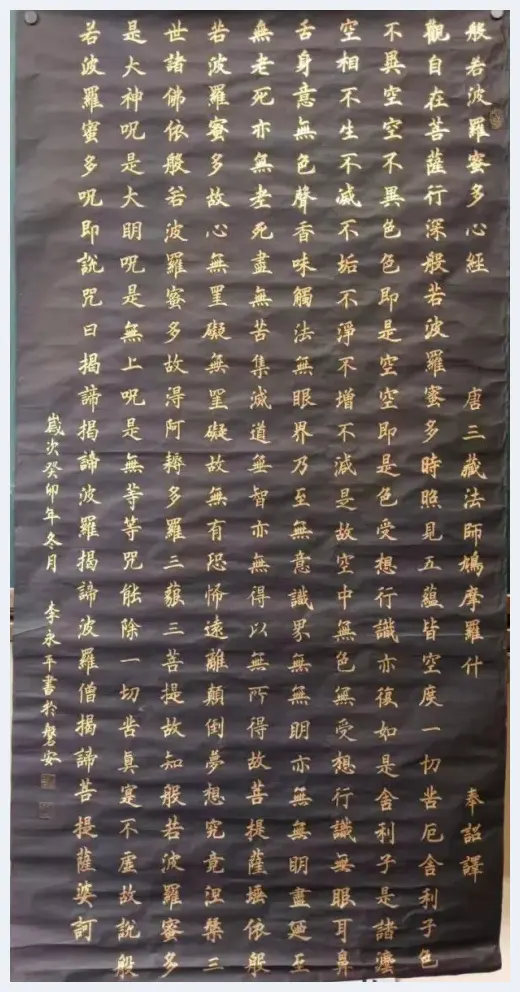 般若波羅蜜多心經 唐三藏法師鳩摩羅什 奉詔譯
觀自在菩薩行深般若波羅蜜多時照見五蘊皆空度一切苦厄舍利子色
不異空空不異色色即是空空即是色受想行識亦復如是舍利子是諸灋
空相不生不滅不垢不淨不增不減是故空中無色無受想行識無眼耳鼻
舌身意無色聲香味觸法無眼界乃至無意識界無無明亦無無明盡廼至
無老死亦無老死盡無苦集滅道無智亦無得以無所得故菩提薩埵依般
若波羅蜜多故心無罣礙無罣礙故無有恐怖遠離顛倒夢想究竟涅槃三
世諸佛依般若波羅蜜多故得阿耨多羅三藐三菩提故知般若波羅蜜多
是大神呪是大明呪是無上呪是無等等咒能除一切苦真寔不虛故說般
若波羅蜜多呪即說咒曰揭諦揭諦波羅揭諦波羅僧揭諦菩提薩婆訶
歲次癸卯年冬月 李永平書於磐安